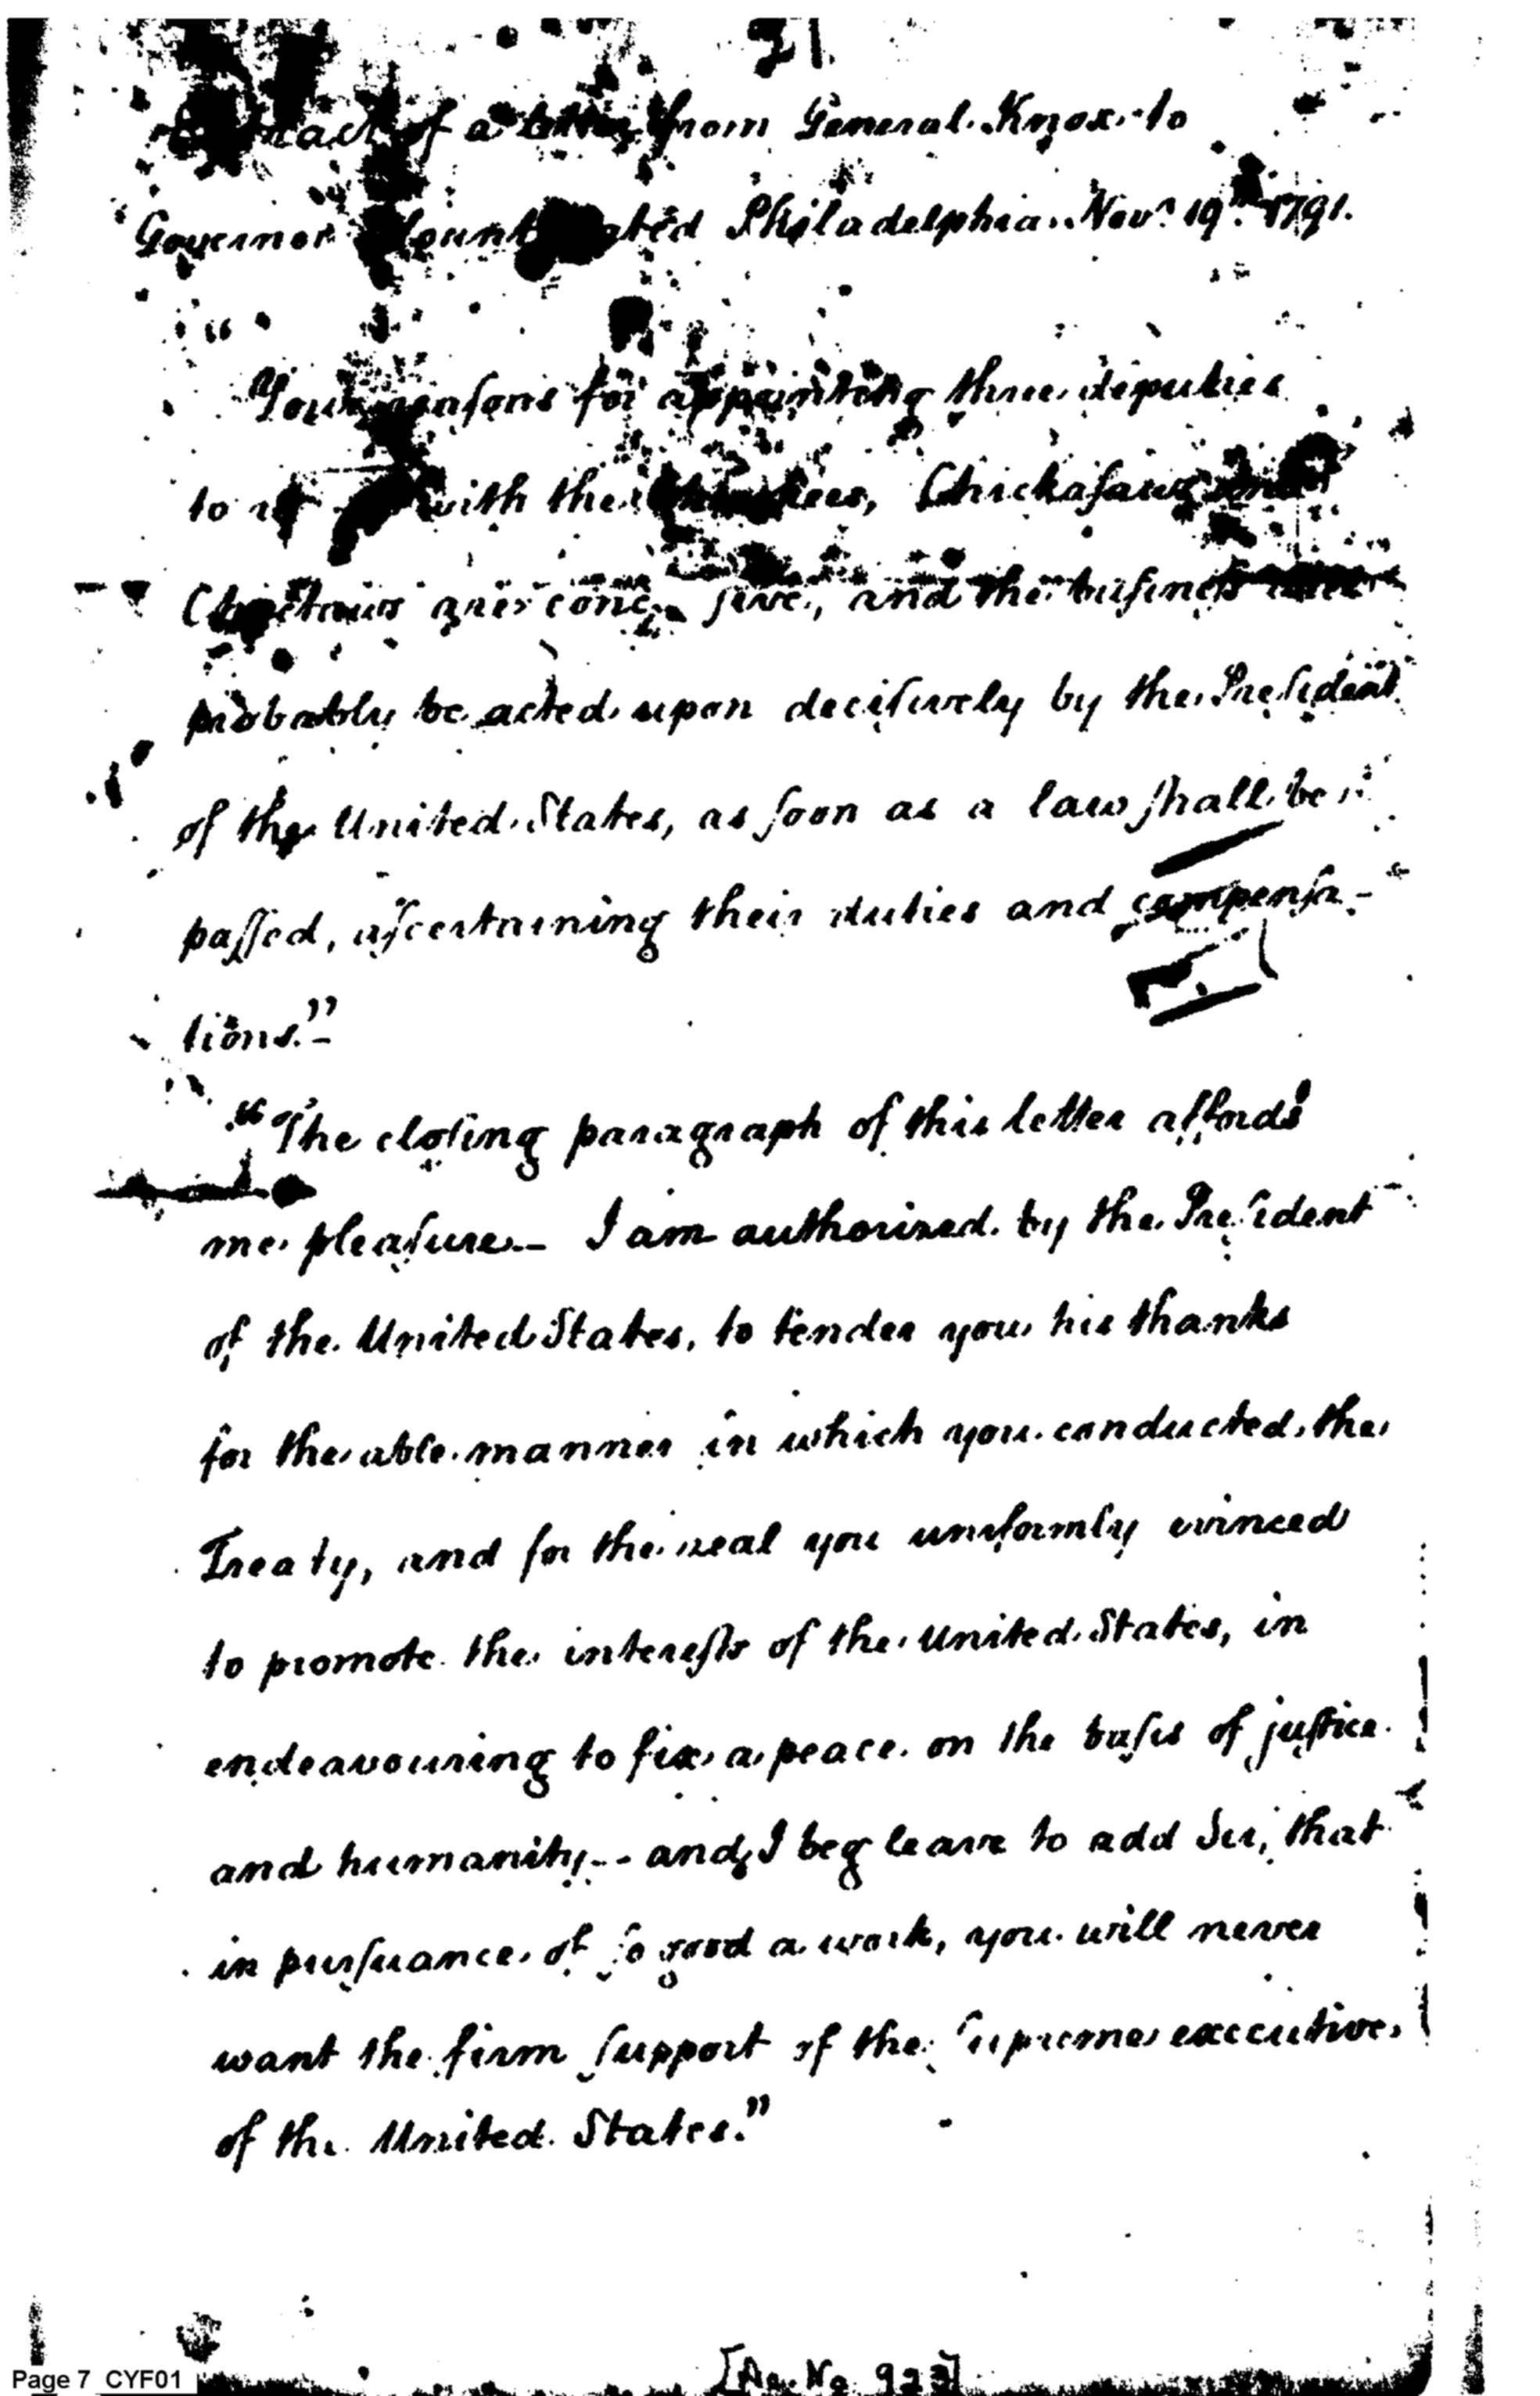 21.
of a letter from General Knox to
Governor Blount dated Philadelphia Novr. 19th. 1791.
"
Your reasons for appointing three deputies
to with the Cherokees, Chickasaws and
Choctaws are conclusive, and the business
probably be acted upon decisively by the President
of the United States, as soon as a law shall be
passed, ascertaining their duties and compensa-
tions."
"The closing paragraph of this letter affords
me pleasure – I am authorized by the President
of the United States, to tender you his thanks
for the able manner in which you conducted the
Treaty, and for the zeal you uniformly evinced
to promote the interests of the United States, in
endeavouring to fix a peace on the basis of justice
and humanity – and, I beg leave to add Sir, that
in pursuance of so good a work, you will never
want the firm support of the supreme executive
of the United States."
[Ac. No. 923]
Page 7 CYF01